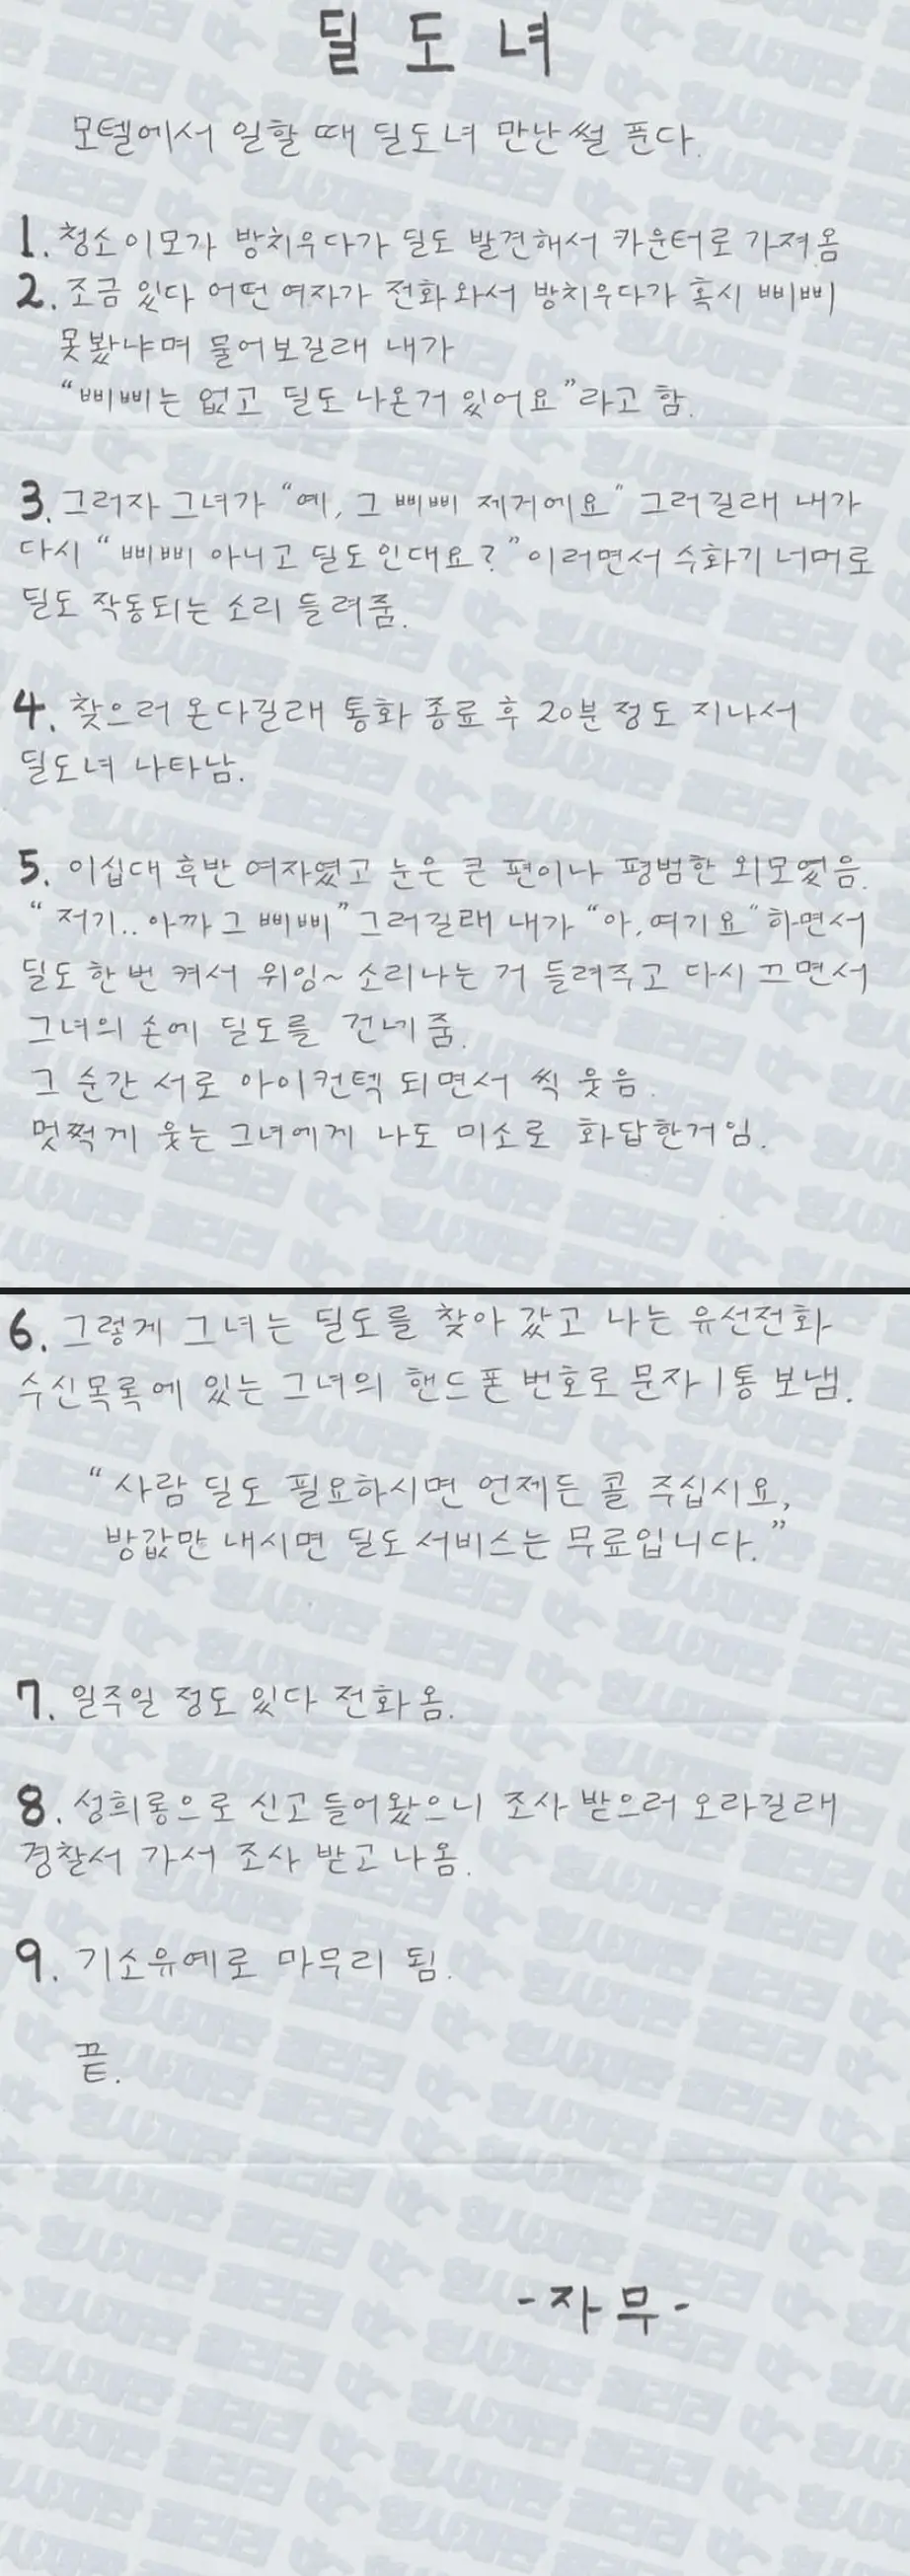 딜도녀
모텔에서 일할 때 딜도녀 만난 썰 푼다.
1. 청소 이모가 방치우다가 딜도 발견해서 카운터로 가져옴
2. 조금 있다 어떤 여자가 전화와서 방치우다가 혹시 삐삐
못봤냐며 물어보길래 내가
“삐삐는 없고 딜도 나온거 있어요”라고 함.
3. 그러자 그녀가 “예, 그 삐삐 제거에요” 그러길래 내가
다시 “삐삐 아니고 딜도인대요?” 이러면서 수화기 너머로
딜도 작동되는 소리 들려줌.
4. 찾으러 온다길래 통화 종료 후 20분 정도 지나서
딜도녀 나타남.
5. 이십대 후반 여자였고 눈은 큰 편이나 평범한 외모였음.
“저기.. 아까 그 삐삐” 그러길래 내가 “아, 여기요” 하면서
딜도 한번 켜서 위잉~ 소리나는 거 들려주고 다시 끄면서
그녀의 손에 딜도를 건네줌.
그 순간 서로 아이컨텍 되면서 씩 웃음.
멋쩍게 웃는 그녀에게 나도 미소로 화답한거임.
6. 그렇게 그녀는 딜도를 찾아 갔고 나는 유선전화
수신목록에 있는 그녀의 핸드폰 번호로 문자 1통 보냄.
“사람 딜도 필요하시면 언제든 콜 주십시요,
방값만 내시면 딜도 서비스는 무료입니다.”
7. 일주일 정도 있다 전화 옴.
8. 성희롱으로 신고 들어왔으니 조사 받으러 오라길래
경찰서 가서 조사 받고 나옴.
9. 기소유예로 마무리 됨.
끝.
-자무-